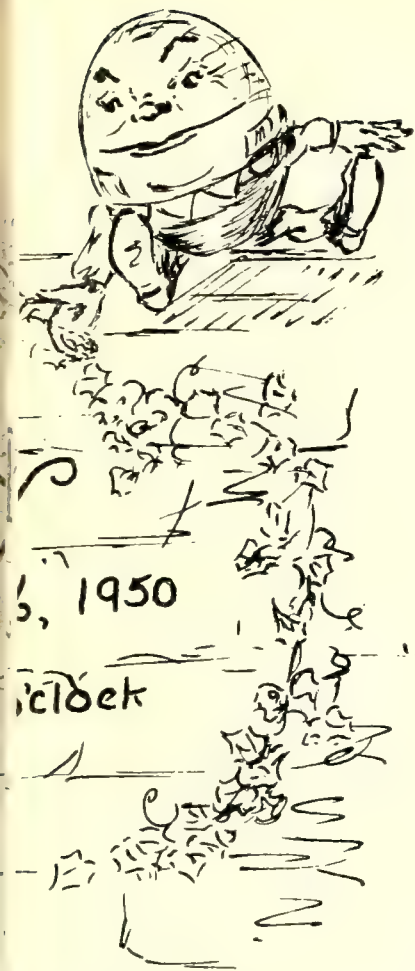 , 1950
'clock